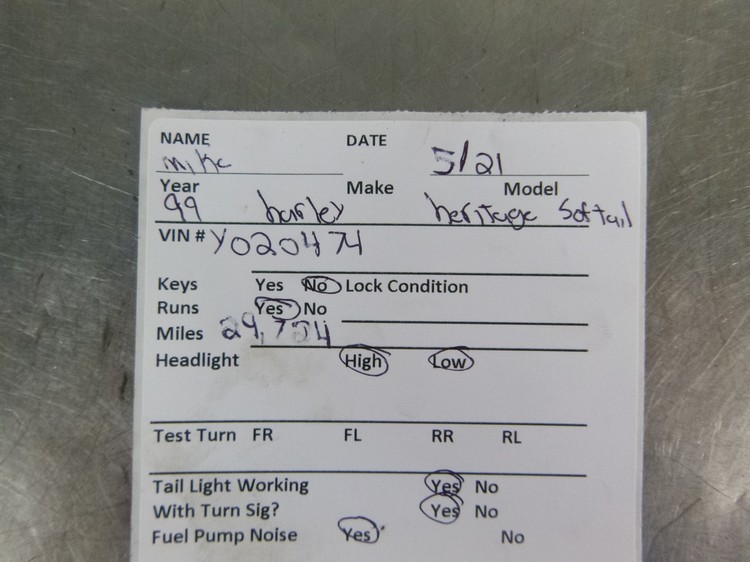 NAME mike DATE 5/21
Year Make Model
99 harley heritage Softail
VIN # Y020474
Keys Yes No Lock Condition
Runs Yes No
Miles
Headlight High Low
Test Turn FR FL RR RL
Tail Light Working Yes No
With Turn Sig? Yes No
Fuel Pump Noise Yes No